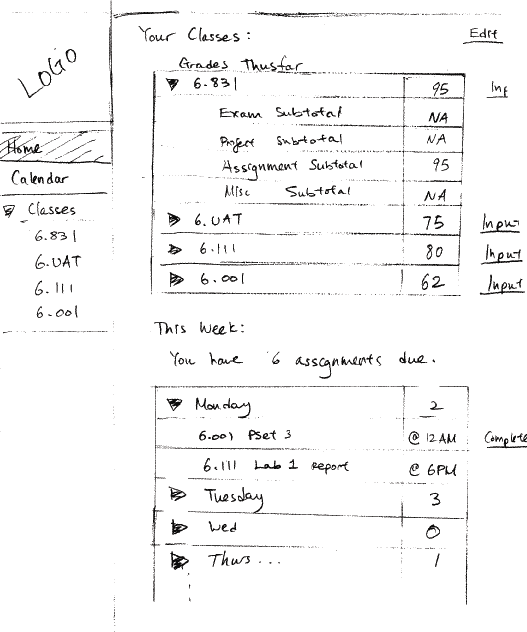 LOGO
Home
Calendar
Classes
6.831
6.UAT
6.111
6.001
Your Classes: Edit
Grades Thusfar
6.831 95
Exam Subtotal NA
Project Subtotal NA
Assignment Subtotal 95
Misc Subtotal NA
6.UAT 75 Input
6.111 80 Input
6.001 62 Input
This Week:
You have 6 assignments due.
Monday 2
6.001 PSet 3 @ 12AM Complete
6.111 Lab 1 report @ 6PM
Tuesday 3
Wed 0
Thurs... 1